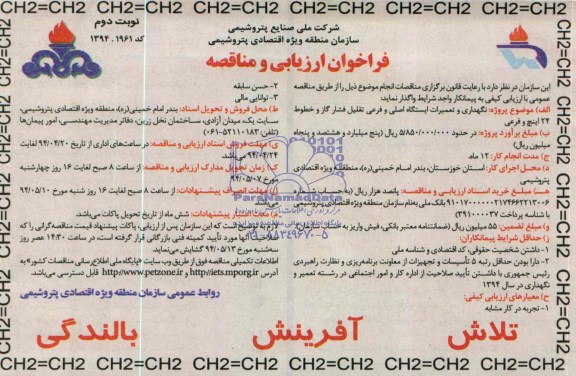 CH2=CH2 CH2=CH2 CH2=CH2 CH2=CH2 CH2=CH2 CH2=CH2
نوبت دوم
کد ۱۹۶۱. ۱۳۹۴
شرکت ملی صنایع پتروشیمی
سازمان منطقه ویژه اقتصادی پتروشیمی
فراخوان ارزیابی و مناقصه
این سازمان در نظر دارد با رعایت قانون برگزاری مناقصات انجام موضوع ذیل را از طریق مناقصه
عمومی با ارزیابی کیفی به پیمانکار واجد شرایط واگذار نماید:
الف) موضوع پروژه: نگهداری و تعمیرات ایستگاه اصلی و فرعی تقلیل فشار گاز و خطوط
۲۴ اینچ و فرعی
ب) مبلغ برآورد پروژه: در حدود ۵۸۵۰/۰۰۰/۰۰۰ ریال (پنج میلیارد و هشتصد و پنجاه
میلیون ریال)
ج) مدت انجام کار: ۱۲ ماه
د) محل اجرای کار: استان خوزستان، بندر امام خمینی(ره)، منطقه ویژه اقتصادی
پتروشیمی
هـ) مبلغ خرید اسناد ارزیابی و مناقصه: پانصد هزار ریال (به حساب شماره
بانک ملی به‌نام سازمان منطقه ویژه اقتصادی پتروشیمی
با شناسه پرداخت ۳۹۱۰۰۰۰۳۷)
و) مبلغ تضمین: ۵۵ میلیون ریال (ضمانتنامه معتبر بانکی، فیش واریز به
ز) حداقل شرایط پیمانکاران:
۱- داشتن شخصیت حقوقی، کد اقتصادی و شناسه ملی
۲- دارا بودن حداقل رتبه ۵ تأسیسات و تجهیزات از معاونت برنامه‌ریزی و نظارت راهبردی
رئیس جمهوری یا داشتن تأیید صلاحیت از اداره کار و امور اجتماعی در رشته تعمیر و
نگهداری در سال ۱۳۹۴
ح) معیارهای ارزیابی کیفی:
۱- تجربه در کار مشابه
۲- حسن سابقه
۳- توانایی مالی
ط) محل فروش و تحویل اسناد: بندر امام خمینی(ره)، منطقه ویژه اقتصادی پتروشیمی،
سایت یک، میدان آزادی، ساختمان نخل زرین، دفاتر مدیریت مهندسی، امور پیمان‌ها
(تلفن: ۵۲۱۱۰۱۸۳-۰۶۱)
ی) مهلت فروش اسناد ارزیابی و مناقصه: در ساعت‌های اداری از تاریخ ۹۴/۰۴/۲۰ لغایت
۹۴/۰۴/۲۴ می‌باشد.
ک) زمان تحویل مدارک ارزیابی و مناقصه: از ساعت ۸ صبح لغایت ۱۶ روز چهارشنبه
مورخ ۹۴/۰۵/۰۷
ل) مهلت انصراف پیشنهادات: از ساعت ۸ صبح لغایت ۱۶ روز شنبه مورخ ۹۴/۰۵/۱۰
می‌باشد.
م) مدت اعتبار پیشنهادات: شش ماه از تاریخ تحویل پاکات می‌باشد.
لازم به توضیح است که این سازمان پس از ارزیابی، پاکات پیشنهاد قیمت مناقصه‌گرانی را که
صلاحیت آنها مورد تأیید کمیته فنی بازرگانی قرار گرفته است، در ساعت ۱۴:۳۰ عصر روز
مورخ ۹۴/۰۵/۱۲ گشایش می‌نماید.
اطلاعات تکمیلی مناقصه فوق از طریق وب سایت «پایگاه ملی اطلاع‌رسانی مناقصات کشور» به
آدرس http://iets.mporg.ir و http://www.petzone.ir قابل دسترسی می‌باشد.
روابط عمومی سازمان منطقه ویژه اقتصادی پتروشیمی
ParsNamadData
تلاش آفرینش بالندگی
CH2=CH2 CH2=CH2 CH2=CH2 CH2=CH2 CH2=CH2 CH2=CH2